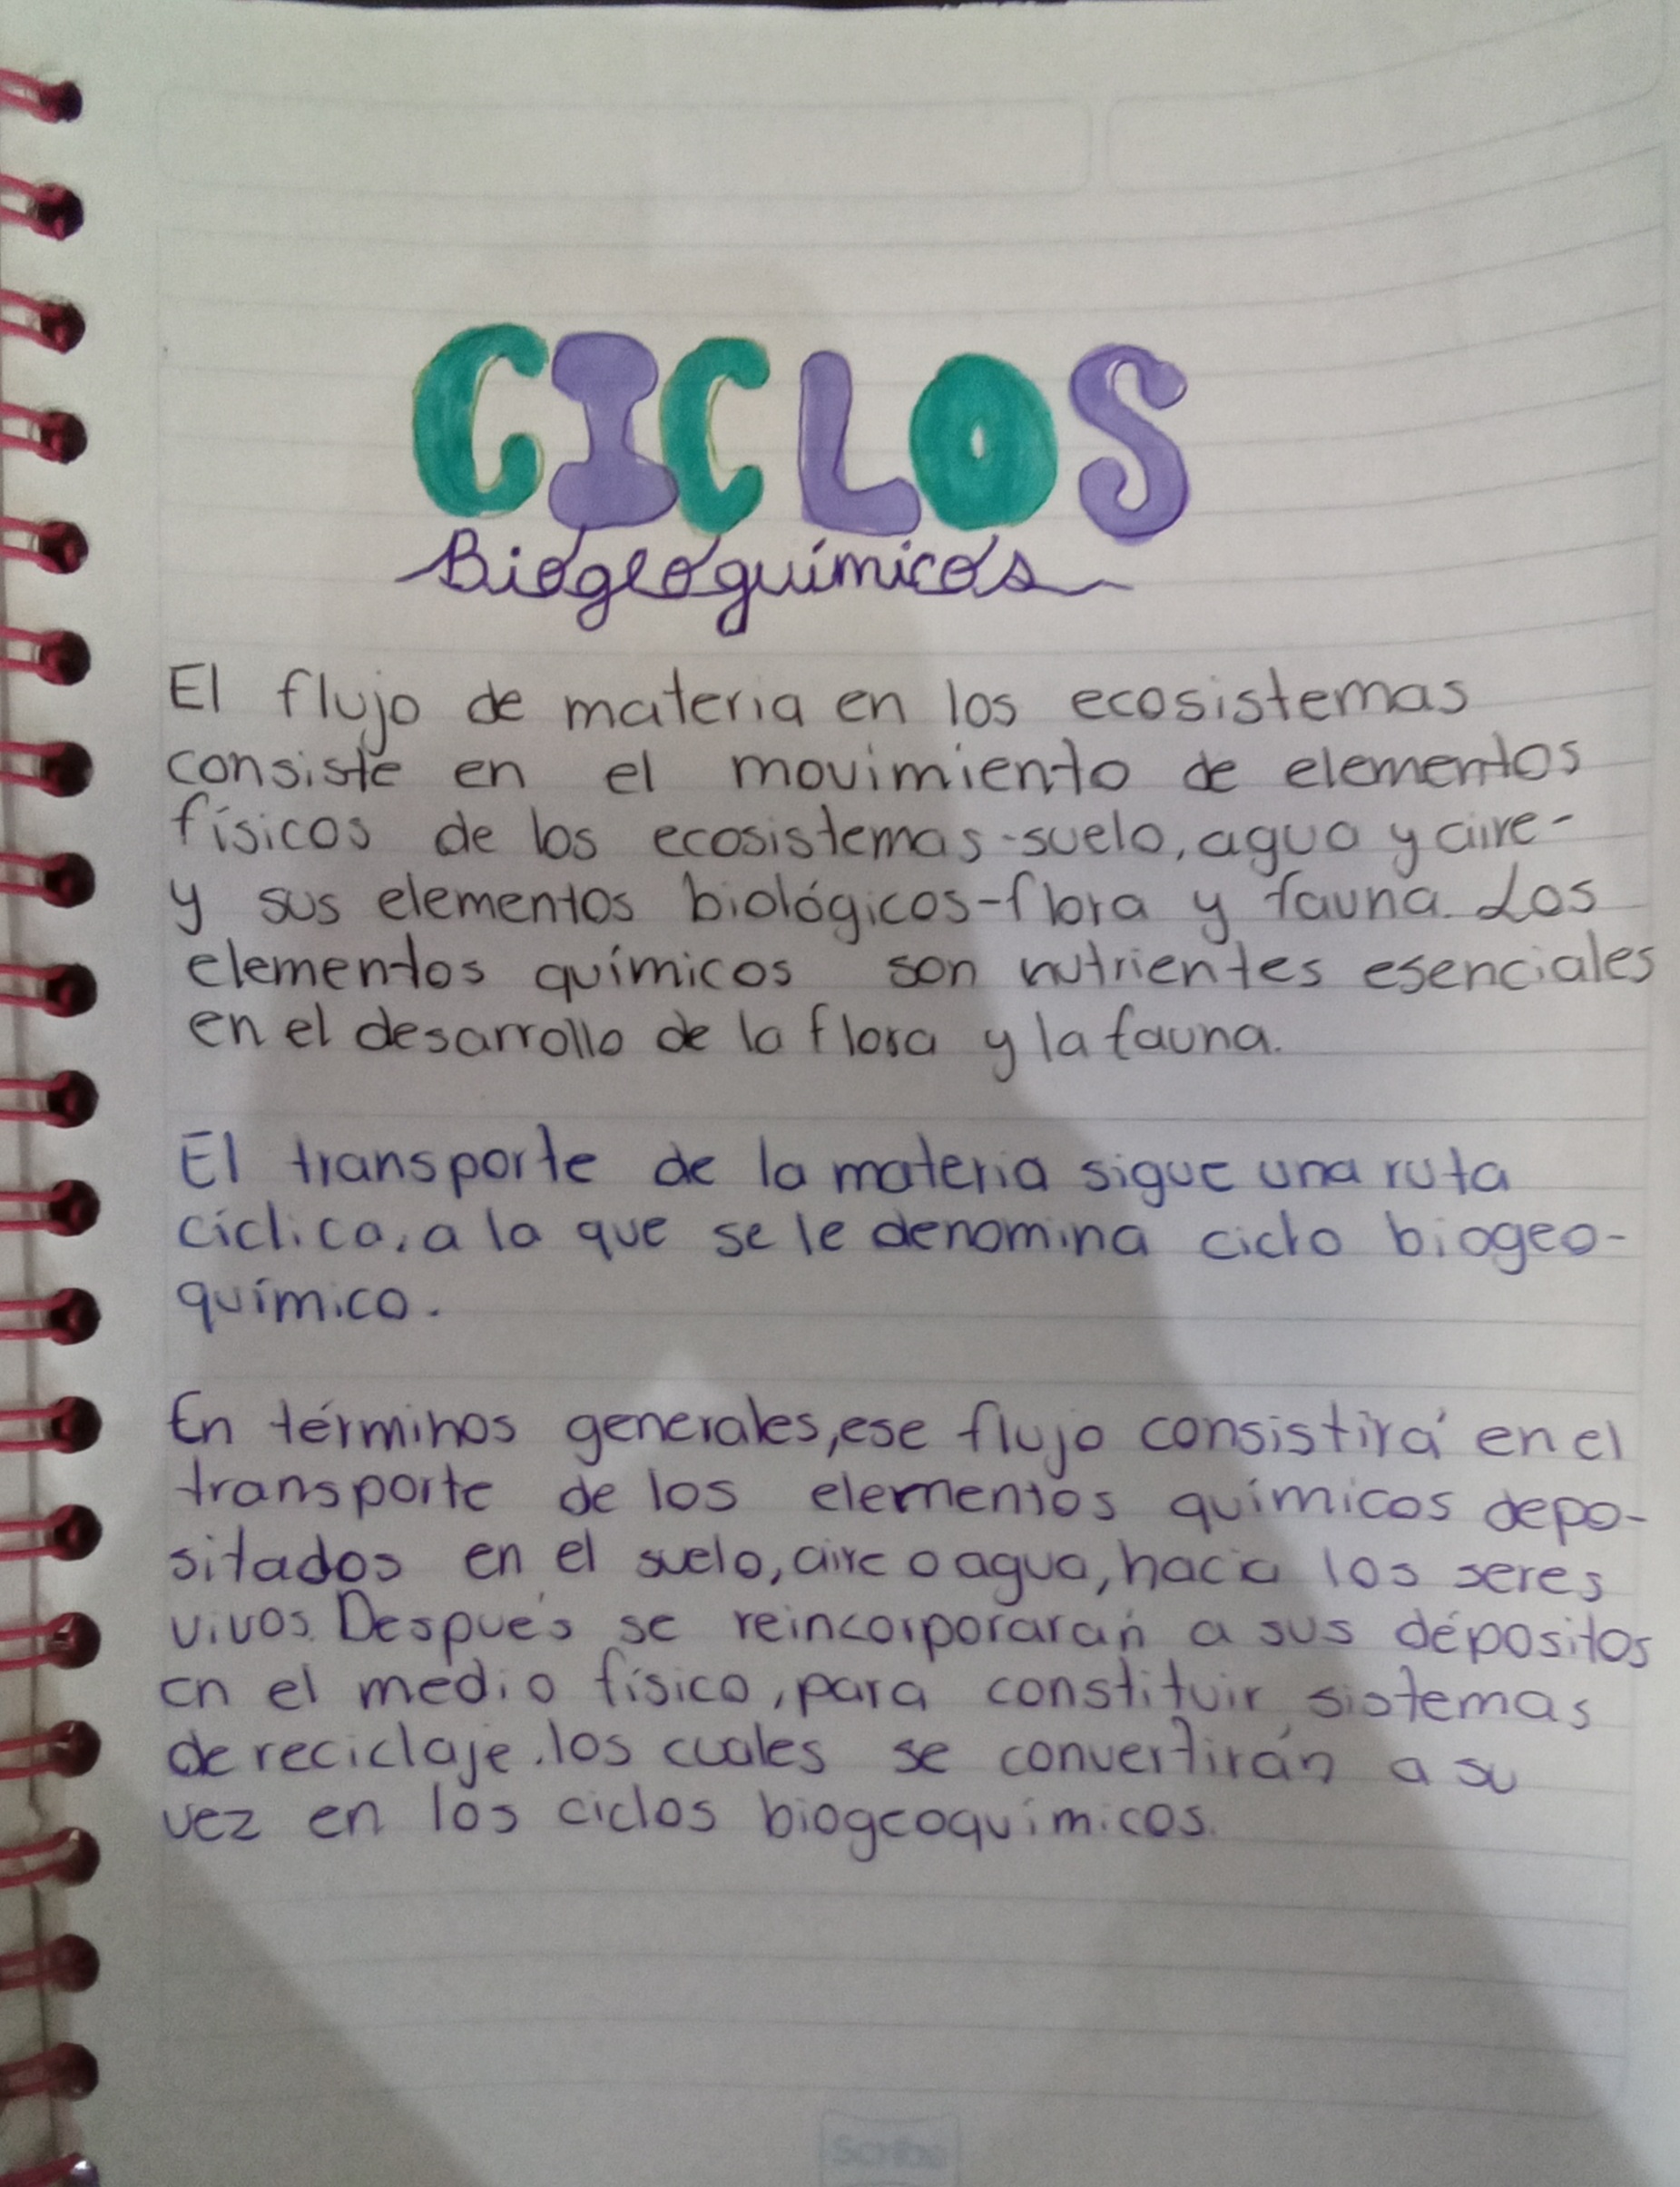 CICLOS
Biogeoquímicos
El flujo de materia en los ecosistemas
consiste en el movimiento de elementos
físicos de los ecosistemas-suelo, agua y aire-
y sus elementos biológicos-flora y fauna. Los
elementos químicos son nutrientes esenciales
en el desarrollo de la flora y la fauna.
El transporte de la materia sigue una ruta
cíclica, a la que se le denomina ciclo biogeo-
químico.
En términos generales, ese flujo consistirá en el
transporte de los elementos químicos depo-
sitados en el suelo, aire o agua, hacia los seres
vivos. Después se reincorporarán a sus dépositos
en el medio físico, para constituir sistemas
de reciclaje. los cuales se convertirán a su
vez en los ciclos biogeoquímicos.
Scribe